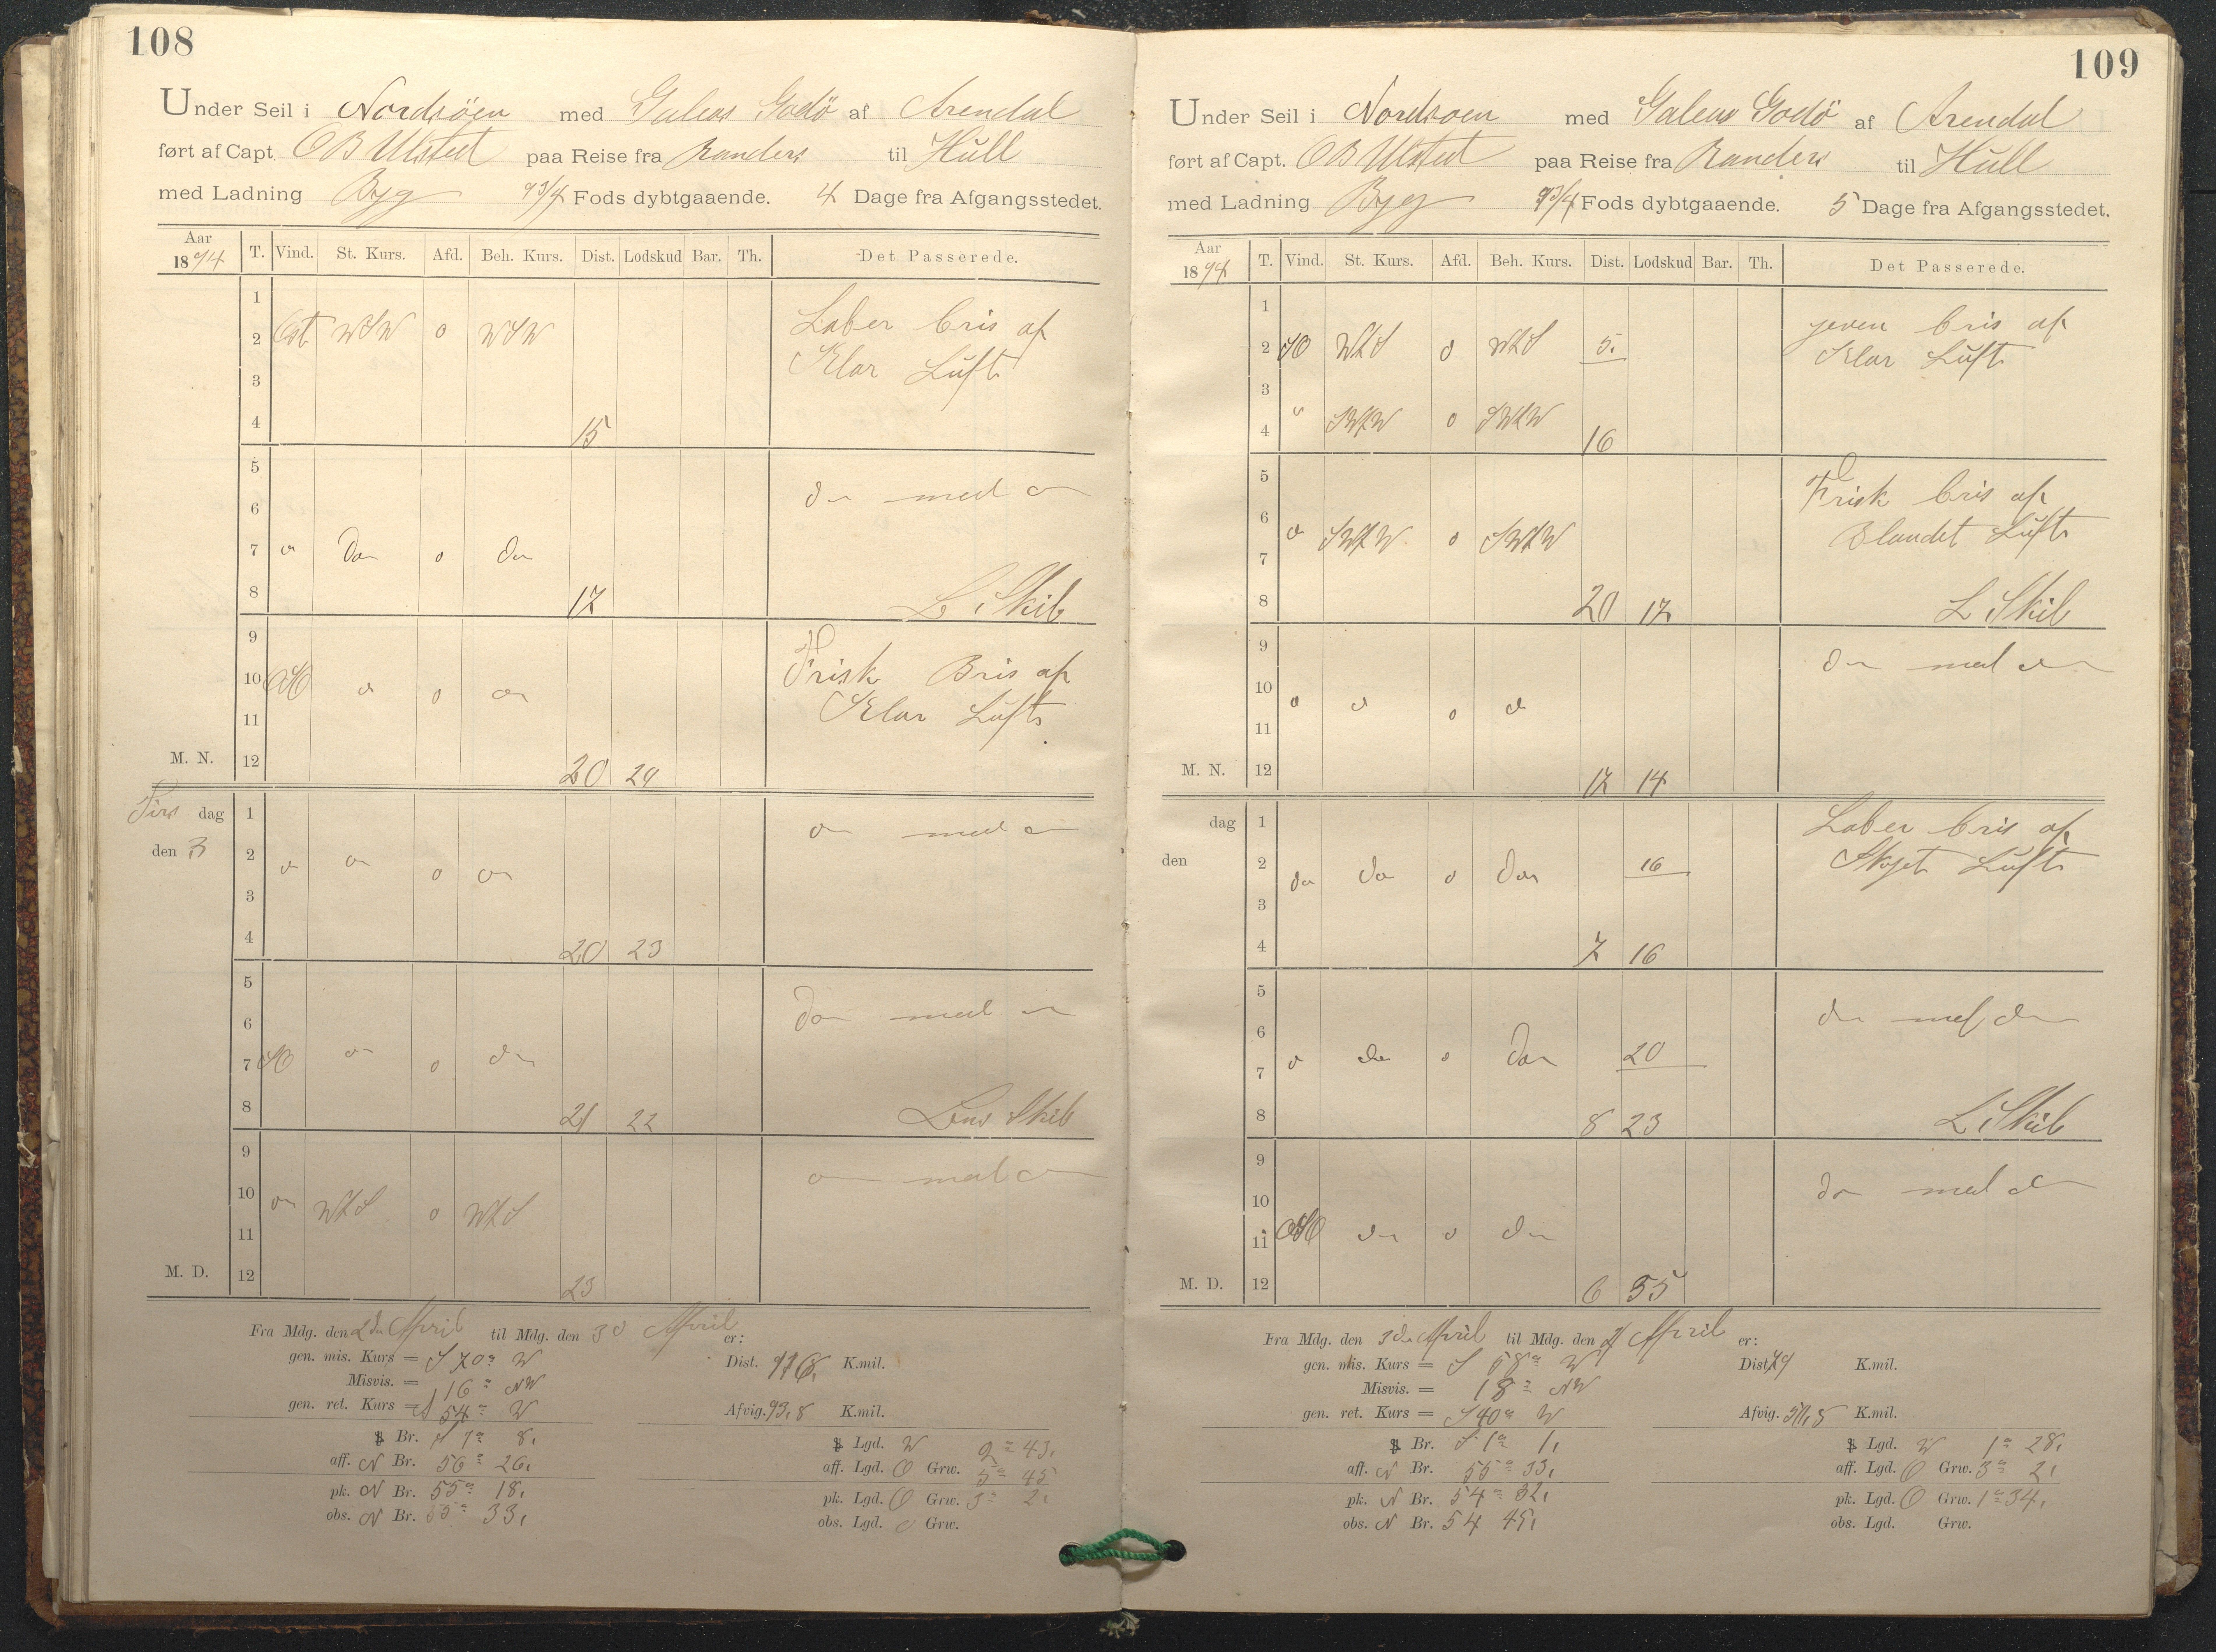 108
Under Seil i Nordsöen med Galeas Godö af Arendal
ført af Capt. OB Ulsted paa Reise fra Randers til Hull
med Ladning Byg 9 3/4 Fods dybtgaaende. 4 Dage fra Afgangsstedet.
Aar 1894 T. Vind. St. Kurs. Afd. Beh. Kurs. Dist. Lodskud Bar. Th. Det Passerede.
1 Laber bris af
2 Ost WSW o WSW Klar Luft
3
4 15
5
6 do med do
7 do do o do
8 17 L Skib
9 Frisk Bris af
10 OSO do o do Klar Luft
11
M. N. 12 20 24
Tirs dag 1 do med do
den 3 2 do do o do
3
4 20 23
5
6 do med do
7 SO do o do
8 21 22 Lens Skib
9 do med do
10 do WZS o WZS
11
M. D. 12 23
Fra Mdg. den 2de April til Mdg. den 3d April er:
gen. mis. Kurs = S 70° W Dist. 116, K.mil.
Misvis. = 16° NW
gen. ret. Kurs = S 54° W Afvig. 93,8 K.mil.
Br. S 1° 8, Lgd. W 2° 43,
aff. N Br. 56° 26, aff. Lgd. O Grw. 5° 45
pk. N Br. 55° 18, pk. Lgd. O Grw. 3° 2,
obs. N Br. 55° 33, obs. Lgd. o Grw.
109
Under Seil i Nordsoen med Galeas Godö af Arendal
ført af Capt. OB Ulsted paa Reise fra Randers til Hull
med Ladning Byg 9 3/4 Fods dybtgaaende. 5 Dage fra Afgangsstedet.
Aar 1894 T. Vind. St. Kurs. Afd. Beh. Kurs. Dist. Lodskud Bar. Th. Det Passerede.
1 jeven bris af
2 SO WZS o WZS 5. Klar Luft
3
4 " SWZW o SWZW 16
5 Frisk bris af
6 do SWZW o SWZW Blandet Luft
7
8 20 17 L Skib
9 do med do
10 do do o do
11
M. N. 12 17 14
dag 1 Laber bris af
den 2 do do o do 16 Skyet Luft
3
4 7 16
5 do med do
6
7 do do o do 20
8 8 23 L Skib
9
10 do med do
11 OSO do o do
M. D. 12 6 35
Fra Mdg. den 3de April til Mdg. den 4 April er:
gen. mis. Kurs = S 58° W Dist. 79 K.mil.
Misvis. = 18° NW
gen. ret. Kurs = S 40° W Afvig. 50,5 K.mil.
Br. S 1° 1, Lgd. W 1° 28,
aff. N Br. 55° 33, aff. Lgd. O Grw. 3° 2,
pk. N Br. 54° 32, pk. Lgd. O Grw. 1° 34,
obs. N Br. 54 45, obs. Lgd. Grw.